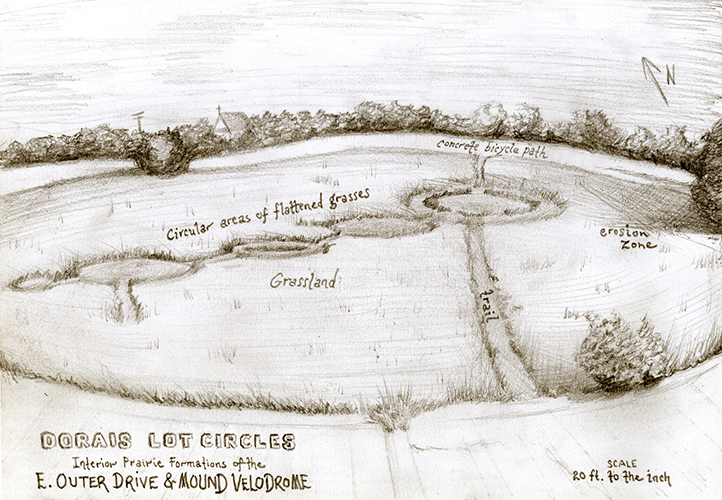 N
concrete bicycle path
Circular areas of flattened grasses
erosion
zone
Grassland
trail
DORAIS LOT CIRCLES
Interior Prairie Formations of the
E. OUTER DRIVE & MOUND VELODROME
SCALE
20 ft. to the inch